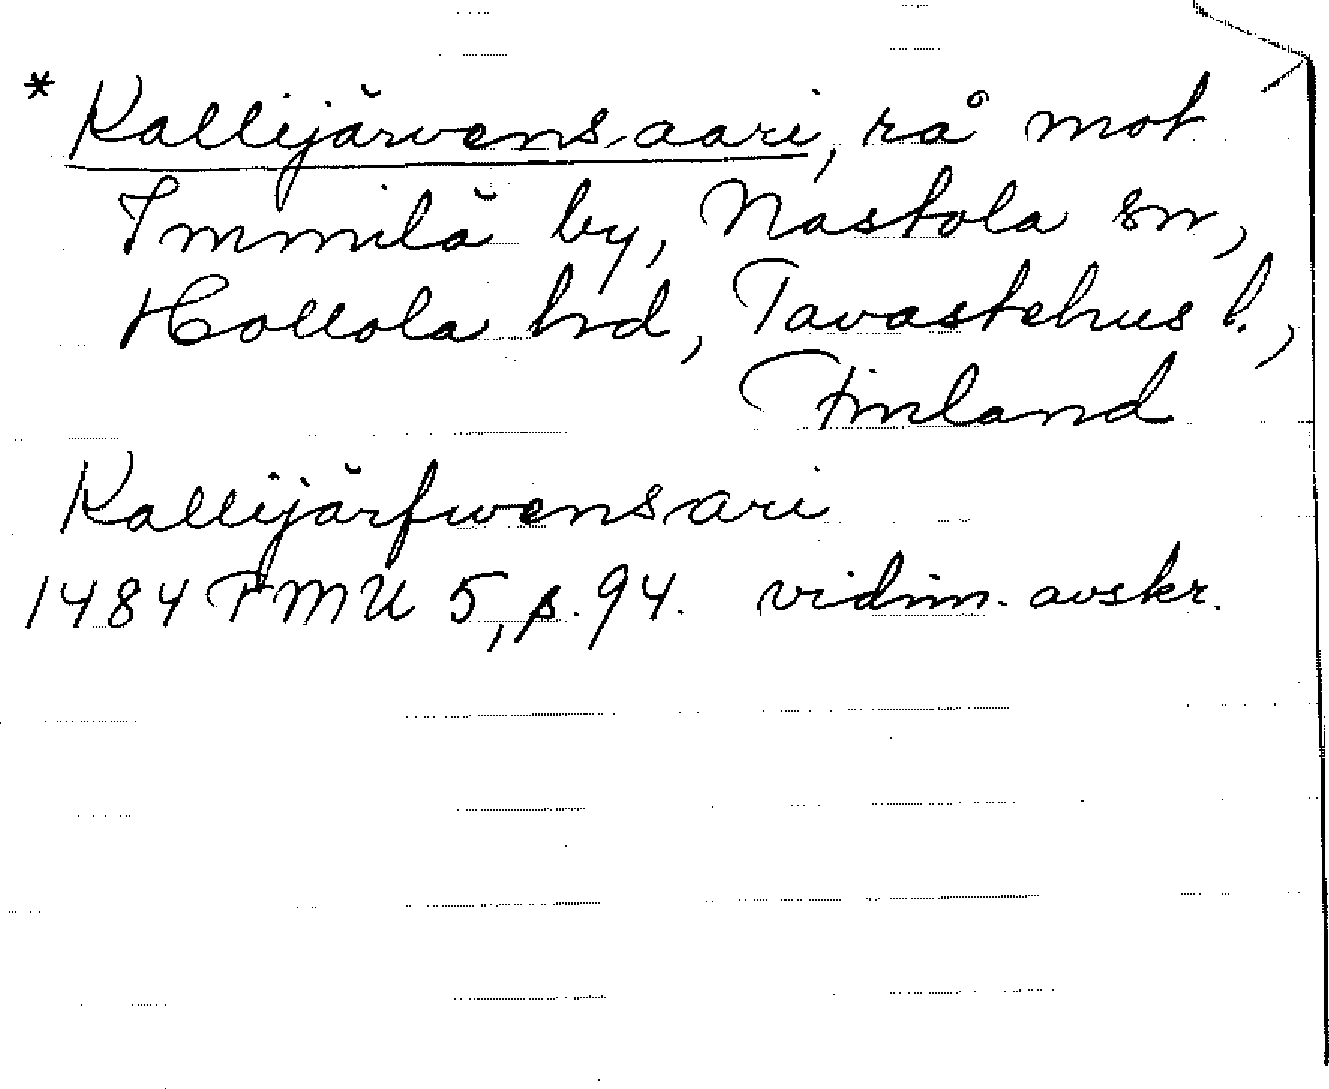 * Kallijärvensaari, rå mot
Immilä by, Nastola sn,
Hollola hd, Tavastehus l.,
Finland
Kallijärfwensari
1484 FMU 5, p. 94. vidim. avskr.